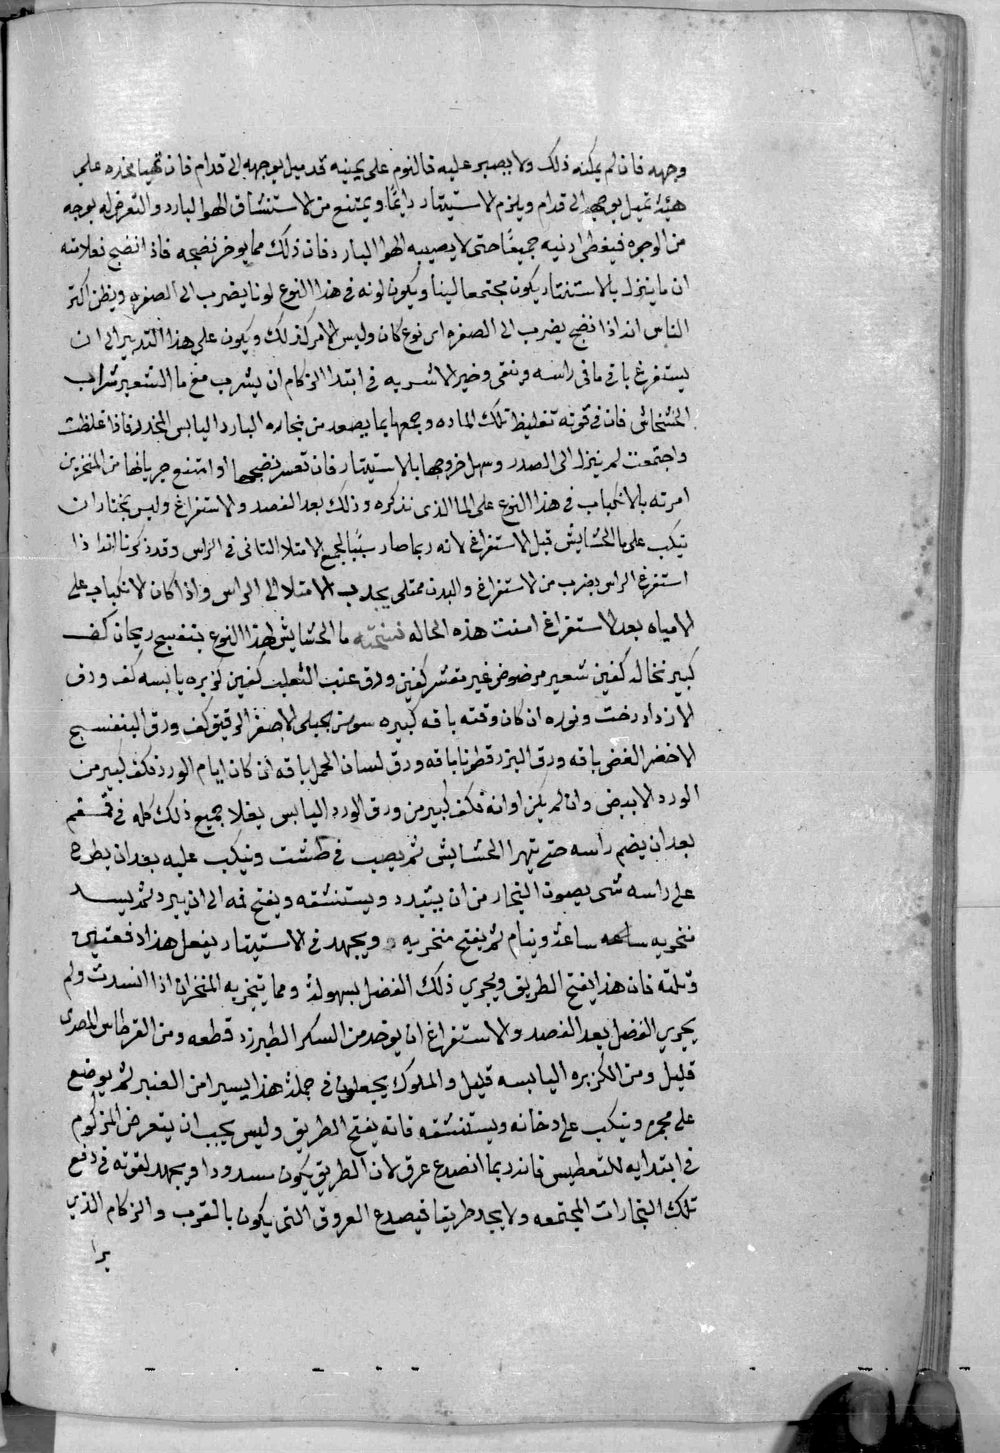 وجهه فان لم يمكنه ذلك ولا يصبر عليه فالنوم على يمينه قد ميل بوجهه الى قدام فان تهيا مخده على
هيئة تميل بوجهه الى قدام ويلزم الاستيثار دايمًا ويمتنع من الاستنشاق الهوا البارد والتعرض له بوجه
من الوجوه فيغطى اذنيه جميعًا حتى لا يصيبه الهوا البارد فان ذلك مما يوخر نضجه فاذا انضج فعلامته
ان ما ينزل بالاستنثار يكون مجتمعا لينا ويكون لونه فى هذا النوع لونا يضرب الى الصفره ويظن اكثر
الناس انه اذا نضج يضرب الى الصفره اى نوع كان وليس الامر كذلك ويكون على هذا التدبير الى ان
يستفرغ باقى ما فى راسه وينقى وخير الاشربه فى ابتدا الزكام ان يشرب مع ما الشعير شراب
الخشخاش فان فى قوته تغليظ تلك الماده وجمعها بما يصعد من بخاره البارد اليابس المخدر فاذا غلظت
واجتمعت لم ينزل الى الصدر وسهل خروجها بالاستيثار فان تعسر نضجها او امتنع جريانها من المنخرين
امرته بالانكباب فى هذا النوع على الما الذى نذكره وذلك بعد الفصد والاستفراغ وليس يختار ان
ينكب على ما الحشايش قبل الاستفراغ لانه ربما صار سببًا لجمع الامتلا الثانى فى الراس وقد ذكرنا انه اذا
استفرغ الراس بضرب من الاستفراغ والبدن ممتلى يجذب الامتلا الى الراس واذا كان الانكباب على
الامياه بعد الاستفراغ امنت هذه الحاله فنسخته ما الحشايش لهذا النوع بنفسج ريحان كف
كبير نخاله كفين شعير مرضوض غير مقشر كفين ورق عنب الثعلب كفين كزبره يابسه كف ورق
الازداد رخت ونوره ان كان وقته باقه كبيره سوسن جبلى الاصفر الرقيق كف ورق البنفسج
الاخضر الغض باقه ورق البزرقطونا باقه ورق لسان الحمل باقه ان كان ايام الورد فكف كبير من
الورد الابيض وان لم يكن اوانه فكف كبير من ورق الورد اليابس يغلا جميع ذلك كله فى قمقم
بعد ان يضم راسه حتى يتهرا الحشايش ثم يصب فى طشت وينكب عليه بعد ان يطرح
على راسه شى يصون البخار من ان يتبدد ويستنشقه ويفتح فمه الى ان يبرد ثم يسد
منخريه ساعه ساعة وينام ثم يفتح منخريه ويجهد فى الاستيثار يفعل هذا دفعتين
وثلثه فان هذا يفتح الطريق ويجرى ذلك الفضل بسهولة ومما يتبخر به المنخران اذا انسدت ولم
يجرى الفضل بعد الفصد والاستفراغ ان يوخذ من السكر الطبرزد قطعه ومن القرطاس المصرى
قليل ومن الكزبره اليابسه قليل والملوك يجعلون فى جملة هذا يسيرا من العنبر ثم يوضع
على مجمر وينكب على دخانه ويستنشقه فانه يفتح الطريق وليس يجب ان يتعرض المزكوم
فى ابتدايه للتعطيس فانه ربما انصدع عرق لان الطريق يكون مسدودا ويجهد لقوته فى دفع
تلك البخارات المجتمعه ولا يجد طريقا فيصدع العروق التى يكون بالقرب والزكام الذى
برا